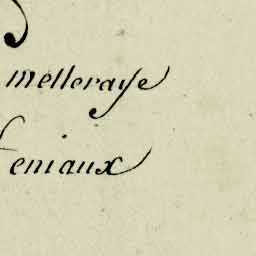 melleraye
eniaux